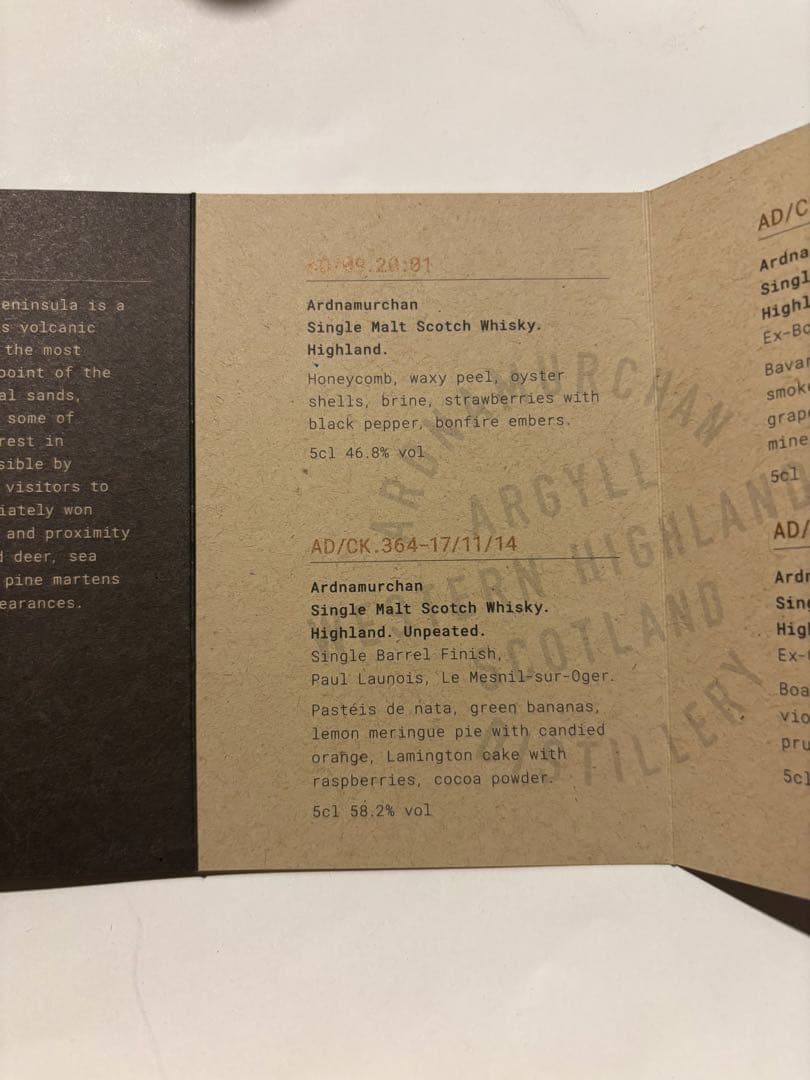 eninsula is a
s volcanic
the most
point of the
al sands,
some of
rest in
sible by
visitors to
iately won
and proximity
d deer, sea
pine martens
earances.
AD/09.20:01
Ardnamurchan
Single Malt Scotch Whisky.
Highland.
Honeycomb, waxy peel, oyster
shells, brine, strawberries with
black pepper, bonfire embers.
5cl 46.8% vol
AD/CK.364-17/11/14
Ardnamurchan
Single Malt Scotch Whisky.
Highland. Unpeated.
Single Barrel Finish,
Paul Launois, Le Mesnil-sur-Oger.
Pastéis de nata, green bananas,
lemon meringue pie with candied
orange, Lamington cake with
raspberries, cocoa powder.
5cl 58.2% vol
ARDNAMURCHAN
ARGYLL
WESTERN HIGHLAND
SCOTLAND
DISTILLERY
AD/C
Ardna
Singl
Highl
Ex-Bo
Bavar
smok
grap
mine
5cl
AD/
Ardn
Sing
High
Ex-
Boa
vio
pru
5cl